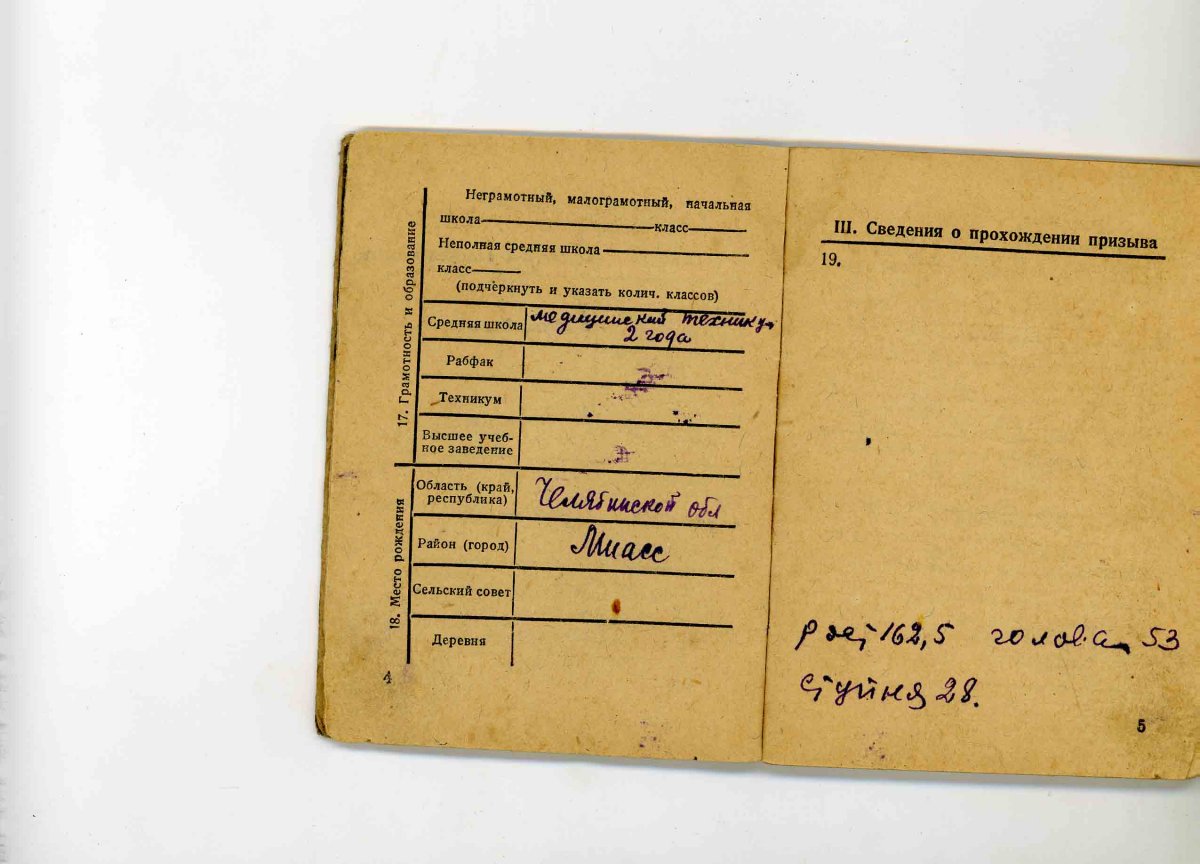 17. Грамотность и образование
Неграмотный, малограмотный, начальная
школа класс
Неполная средняя школа
класс
(подчеркнуть и указать колич. классов)
Средняя школа медицинский технику
2 года
Рабфак
Техникум
Высшее учеб-
ное заведение
18. Место рождения
Область (край, республика) Челябинской обл
Район (город) Миасс
Сельский совет
Деревня
4
III. Сведения о прохождении призыва
19.
рост 162,5 голова 53
ступня 28.
5